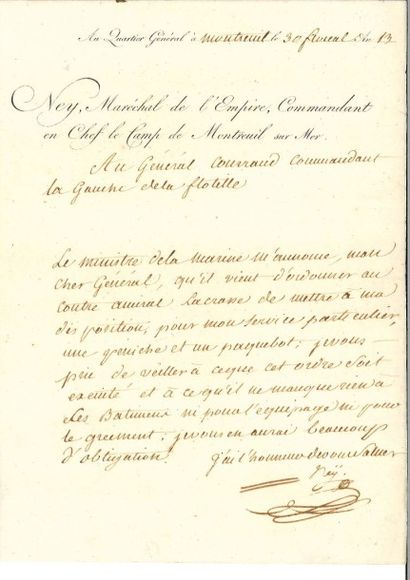 Au Quartier Général à montreuil le 30 floreal An 13
Ney, Maréchal de l'Empire, Commandant
en Chef le Camp de Montreuil sur Mer.
Au Général Courrand Commandant
la Gauche dela flotille
Le ministre dela marine m'annonce, mon
cher Général, qu'il vient d'ordonner au
contre amiral Lacrasse de mettre à ma
disposition, pour mon service particulier,
une peniche et un paquebot; je vous
prie de veiller à ceque cet ordre soit
exécuté et à ce qu'il ne manque rien à
ces Batimens ni pour l'equipage ni pour
le greement; je vous en aurai beaucoup
d'obligation. j'ai l'honneur de vous saluer
Ney